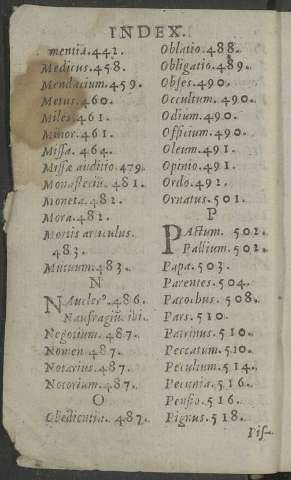 INDEX.
mentia.441.
Medicus.458.
Mendacium.459.
Metus.460.
Miles.461.
Minor.461.
Missa.464.
Missæ auditio.479.
Monasteriū.481.
Moneta.482.
Mora.482.
Mortis articulus.
483.
Mutuum.483.
N
NAucler⁹.486.
Naufragiū.ibi.
Negotium.487.
Nomen.487.
Notarius.487.
Notorium.487.
O
Obedientia.487.
Oblatio.488.
Obligatio.489.
Obses.490.
Occultum.490.
Odium.490.
Officium.490.
Oleum.491.
Opinio.491.
Ordo.491.
Ornatus.501.
P
PActum. 502.
Pallium.502.
Papa.503.
Parentes.504.
Parochus.508.
Pars.510.
Patrinus.510.
Peccatum.510.
Peculium.514.
Pecunia.516.
Pensio.516.
Pignus.518.
Pis-